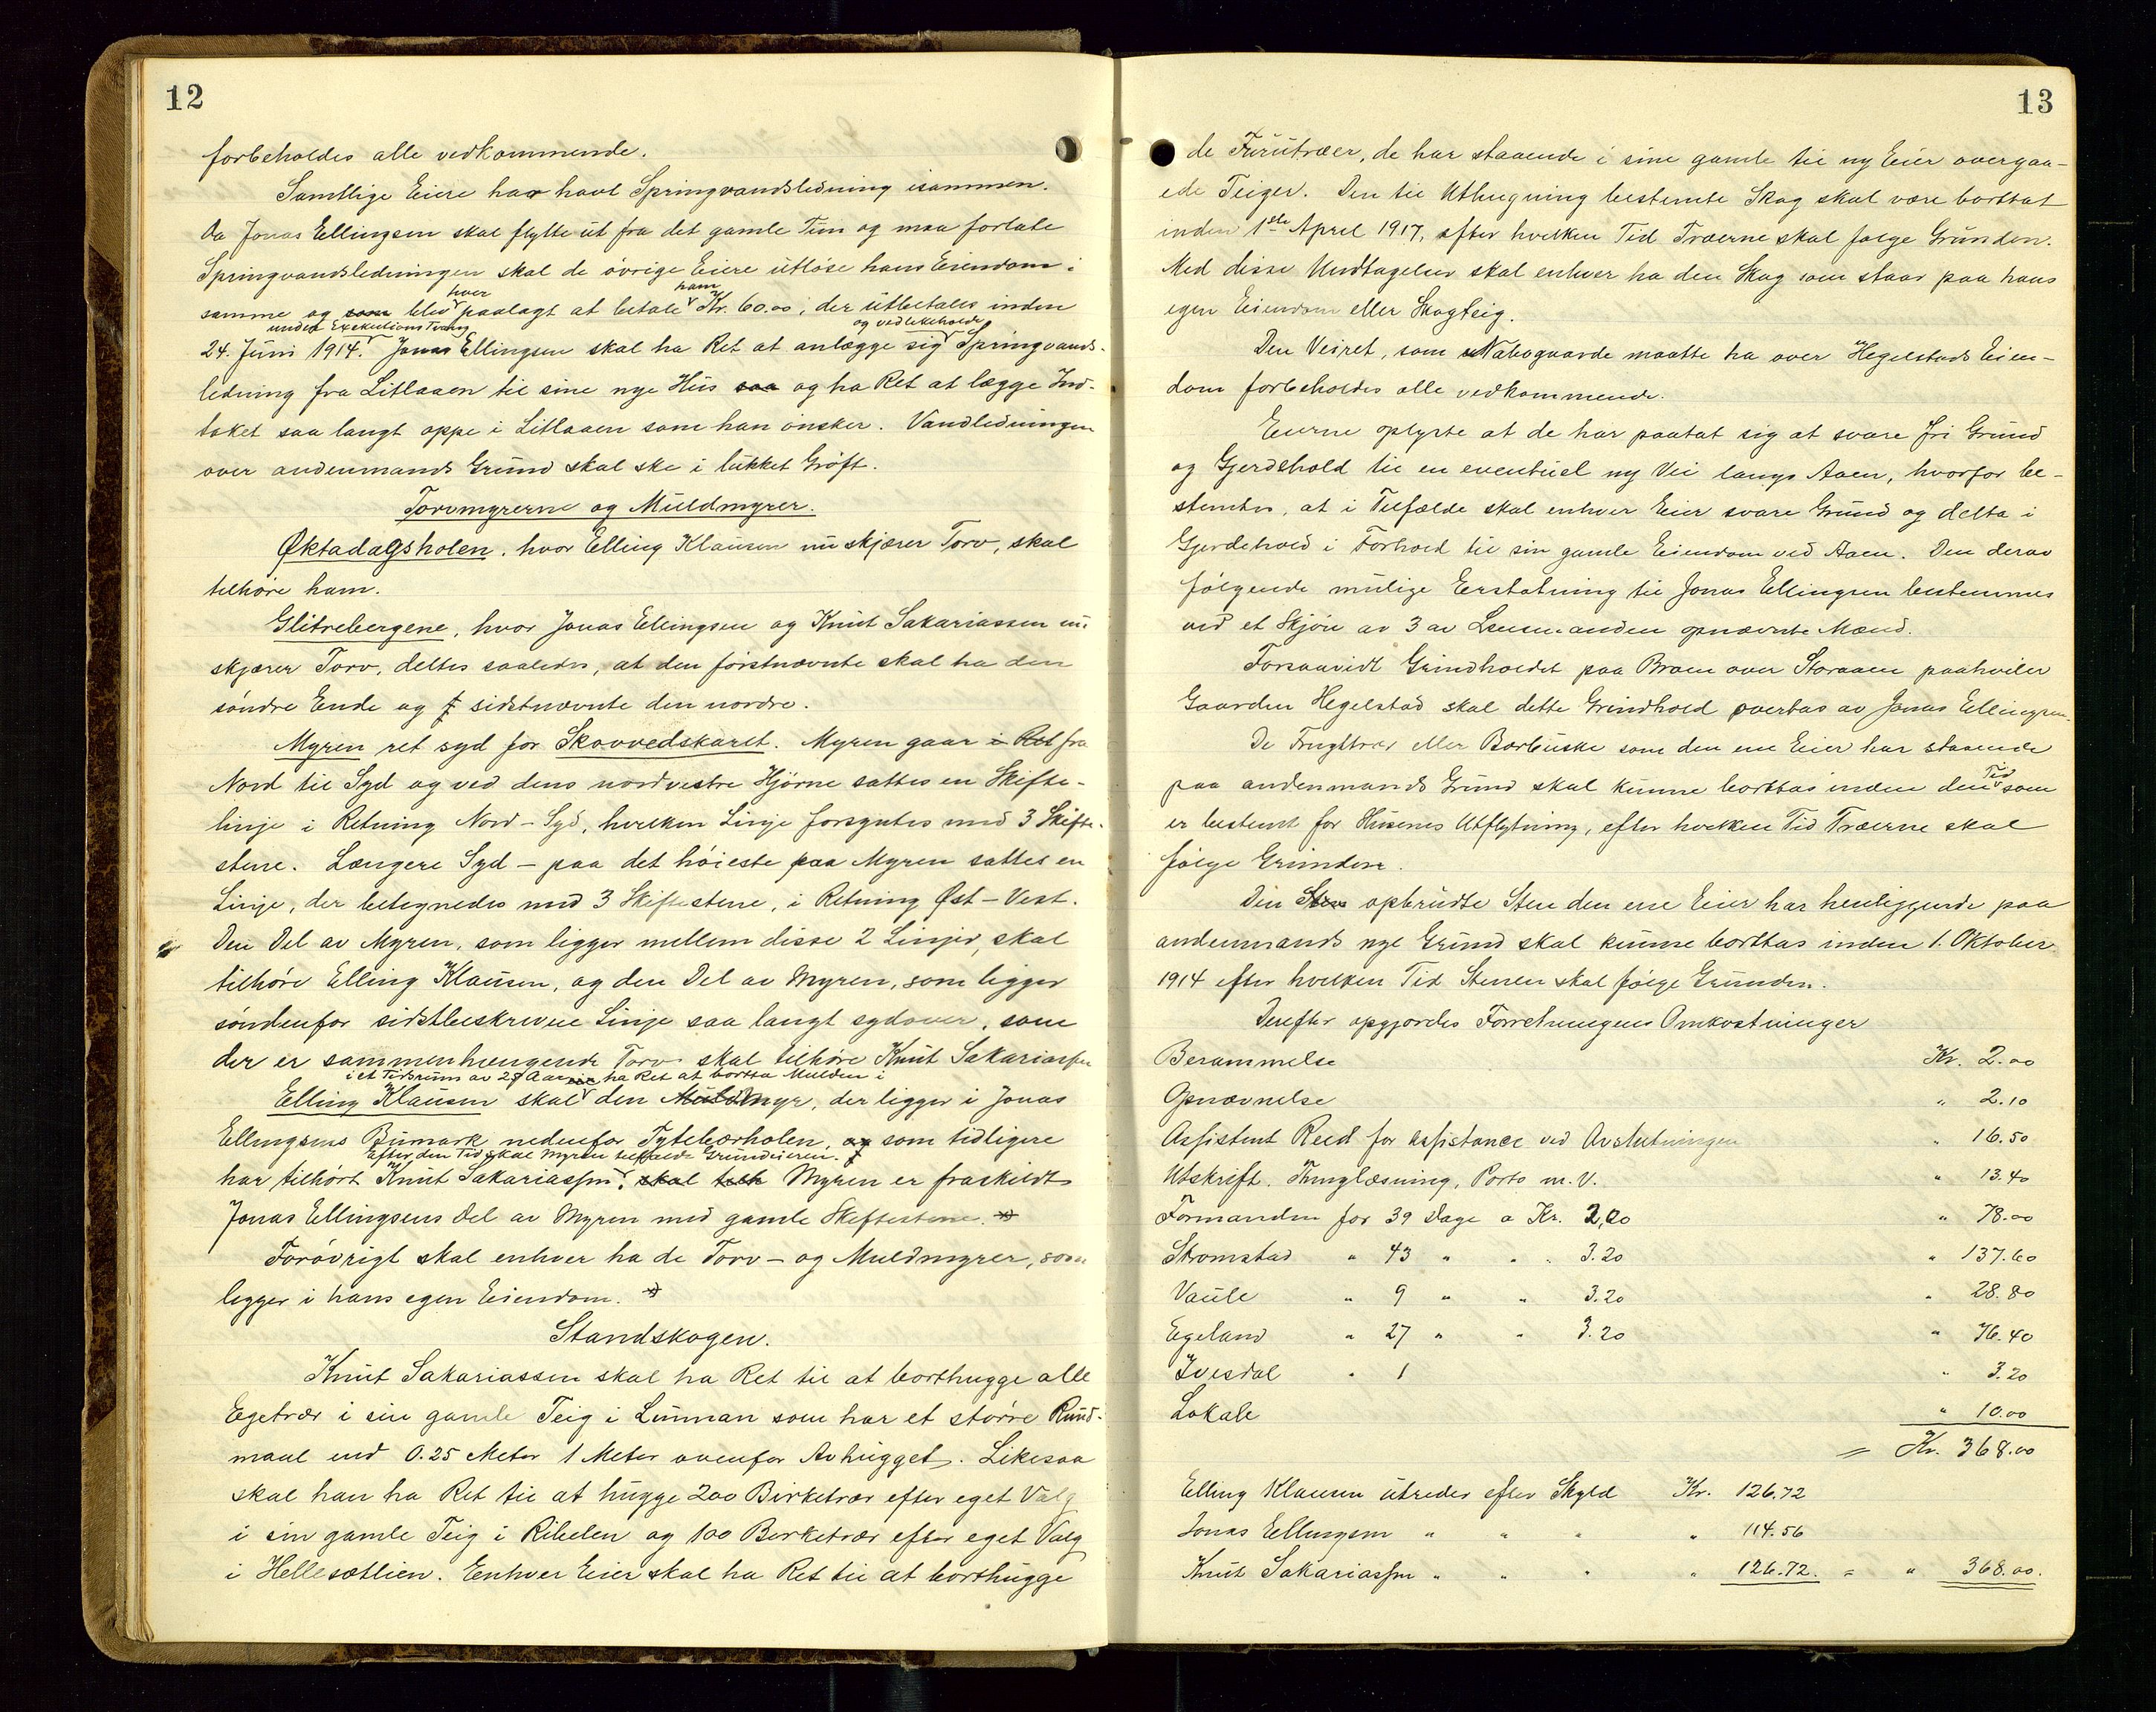 12
forbeholdes alle vedkommende.
Samtlige Eiere har havt Springvandsledning isammen.
Da Jonas Ellingsen skal flytte ut fra det gamle Tun og maa forlate
Springvandsledningen skal de øvrige Eiere utløse hans Eiendom i
hver ham
samme og som blev paalagt at betale Kr. 60.00, der utbetales inden
under Exekutions Tvang og vedlikeholde
24. Juni 1914. Jonas Ellingsen skal ha Ret at anlægge sig Springvands-
ledning fra Litlaaen til sine nye Hus saa og ha Ret at lægge Ind-
taket saa langt oppe i Litlaaen som han ønsker. Vandledningen
over andenmands Grund skal ske i lukket Grøft.
Torvmyrerne og Muldmyrer.
Øktadalsholen, hvor Elling Klausen nu skjærer Torv, skal
tilhøre ham.
Glitrebergene, hvor Jonas Ellingsen og Knut Sakariassen nu
skjærer Torv, deltes saaledes, at den førstnævnte skal ha den
søndre Ende og sidstnævnte den nordre.
Myren ret syd for Skovvedskaret. Myren gaar i Ret fra
Nord til Syd og ved dens nordvestre Hjørne sattes en Skifte-
linje i Retning Nord-Syd, hvilken Linje forsyntes med 3 Skifte-
stene. Længere Syd - paa det høieste paa Myren sattes en
Linje, der betegnedes med 3 Skiftestene, i Retning Øst-Vest.
Den Del av Myren, som ligger mellem disse 2 Linjer, skal
tilhøre Elling Klausen, og den Del av Myren, som ligger
søndenfor sidstbeskrevne Linje saa langt sydover, som
der er sammenhængende Torv skal tilhøre Knut Sakariassen
i et Tidsrum av 25 Aar ha Ret at bortta Mulden i
Elling Klausen skal den Muldmyr, der ligger i Jonas
Ellingsens Bumark nedenfor Tytebærholen, og som tidligere
Efter den Tid skal Myren tilfalde Grundeieren.
har tilhørt Knut Sakariassen, skal tilh Myren er fraskildt
Jonas Ellingsens Del av Myren med gamle Skiftestene.
Forøvrigt skal enhver ha de Torv- og Muldmyrer, som
ligger i hans egen Eiendom.
Standskogen.
Knut Sakariassen skal ha Ret til at borthugge alle
Egetrær i sin gamle Teig i Lunnan som har et større Rund-
maal end 0.25 Meter 1 Meter ovenfor Avhugget. Likesaa
skal han ha Ret til at hugge 200 Birketrær efter eget Valg
i sin gamle Teig i Ribelen og 100 Birketrær efter eget Valg
i Hellesætlien. Enhver Eier skal ha Ret til at borthugge
13
de Furutræer, de har staaende i sine gamle til ny Eier overgaa-
ede Teiger. Den til Uthugning bestemte Skog skal være borttat
inden 1ste April 1917, efter hvilken Tid Træerne skal følge Grunden.
Med disse Undtagelser skal enhver ha den Skog som staar paa hans
egen Eiendom eller Skogteig.
Den Veiret, som Nabogaarde maatte ha over Hegelstads Eien-
dom forbeholdes alle vedkommende.
Eierne oplyste at de har paatat sig at svare fri Grund
og Gjerdehold til en eventuel ny Vei langs Aaen, hvorfor be-
stemtes, at i Tilfælde skal enhver Eier svare Grund og delta i
Gjerdehold i Forhold til sin gamle Eiendom ved Aaen. Den derav
følgende mulige Erstatning til Jonas Ellingsen bestemmes
ved et Skjøn av 3 av Lensmanden opnævnte Mænd.
Forsaavidt Grindholdet paa Broen over Storaaen paahviler
Gaarden Hegelstad skal dette Grindhold overtas av Jonas Ellingsen.
De Frugttrær eller Bærbuske som den ene Eier har staaende
Tid
paa andenmands Grund skal kunne borttas inden den som
er bestemt for Husenes Utflytning, efter hvilken Tid Træerne skal
følge Grunden.
Den Sten opbrudte Sten den ene Eier har henliggende paa
andenmands nye Grund skal kunne borttas inden 1. Oktober
1914 efter hvilken Tid Stenen skal følge Grunden.
Derefter opgjordes Forretningens Omkostninger
Berammelse Kr. 2.00
Opnævnelse " 2.10
Assistent Reed for Assistance ved Avslutningen " 16.50
Utskrift, Thinglæsning, Porto m.V. " 13.40
Formanden for 39 Dage a Kr. 2,00 " 78.00
Stromstad " 43 " " " 3.20 " 137.60
Vaule " 9 " " 3.20 " 28.80
Egeland " 27 " " 3.20 " 76.40
Ivesdal " 1 " 3.20
Lokale " 10.00
= Kr. 368.00
Elling Klausen utreder efter Skyld Kr. 126.72
Jonas Ellingsen " " " " 114.56
Knut Sakariassen " " " " 126.72. = " 368.00.